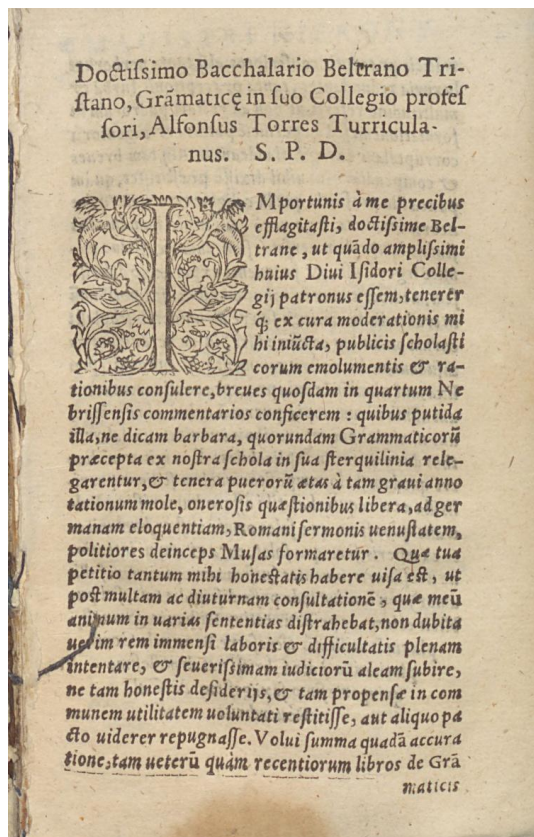 Doctissimo Bacchalario Beltrano Tri-
stano, Grãmaticę in suo Collegio profes
sori, Alfonsus Torres Turricula-
nus. S. P. D.
IMportunis à me precibus
efflagitasti, doctissime Bel-
trane, ut quãdo amplissimi
huius Diui Isidori Colle-
gij patronus essem, tenerer
q́; ex cura moderationis mi
hi iniũcta, publicis scholasti
corum emolumentis & ra-
tionibus consulere, breues quosdam in quartum Ne
brissensis commentarios conficerem : quibus putida
illa, ne dicam barbara, quorundam Grammaticorũ
præcepta ex nostra schola in sua sterquilinia rele-
garentur, & tenera puerorũ ætas à tam graui anno
tationum mole, onerosis quæstionibus libera, ad ger
manam eloquentiam, Romani sermonis uenustatem,
politiores deinceps Musas formaretur. Quæ tua
petitio tantum mihi honestatis habere uisa est, ut
post multam ac diuturnam consultationẽ, quæ meũ
animum in uarias sententias distrahebat, non dubita
uerim rem immensi laboris & difficultatis plenam
intentare, & seuerissimam iudiciorũ aleam subire,
ne tam honestis desiderijs, & tam propensæ in com
munem utilitatem uoluntati restitisse, aut aliquo pa
cto uiderer repugnasse. Volui summa quadã accura
tione, tam ueterũ quàm recentiorum libros de Grã
maticis